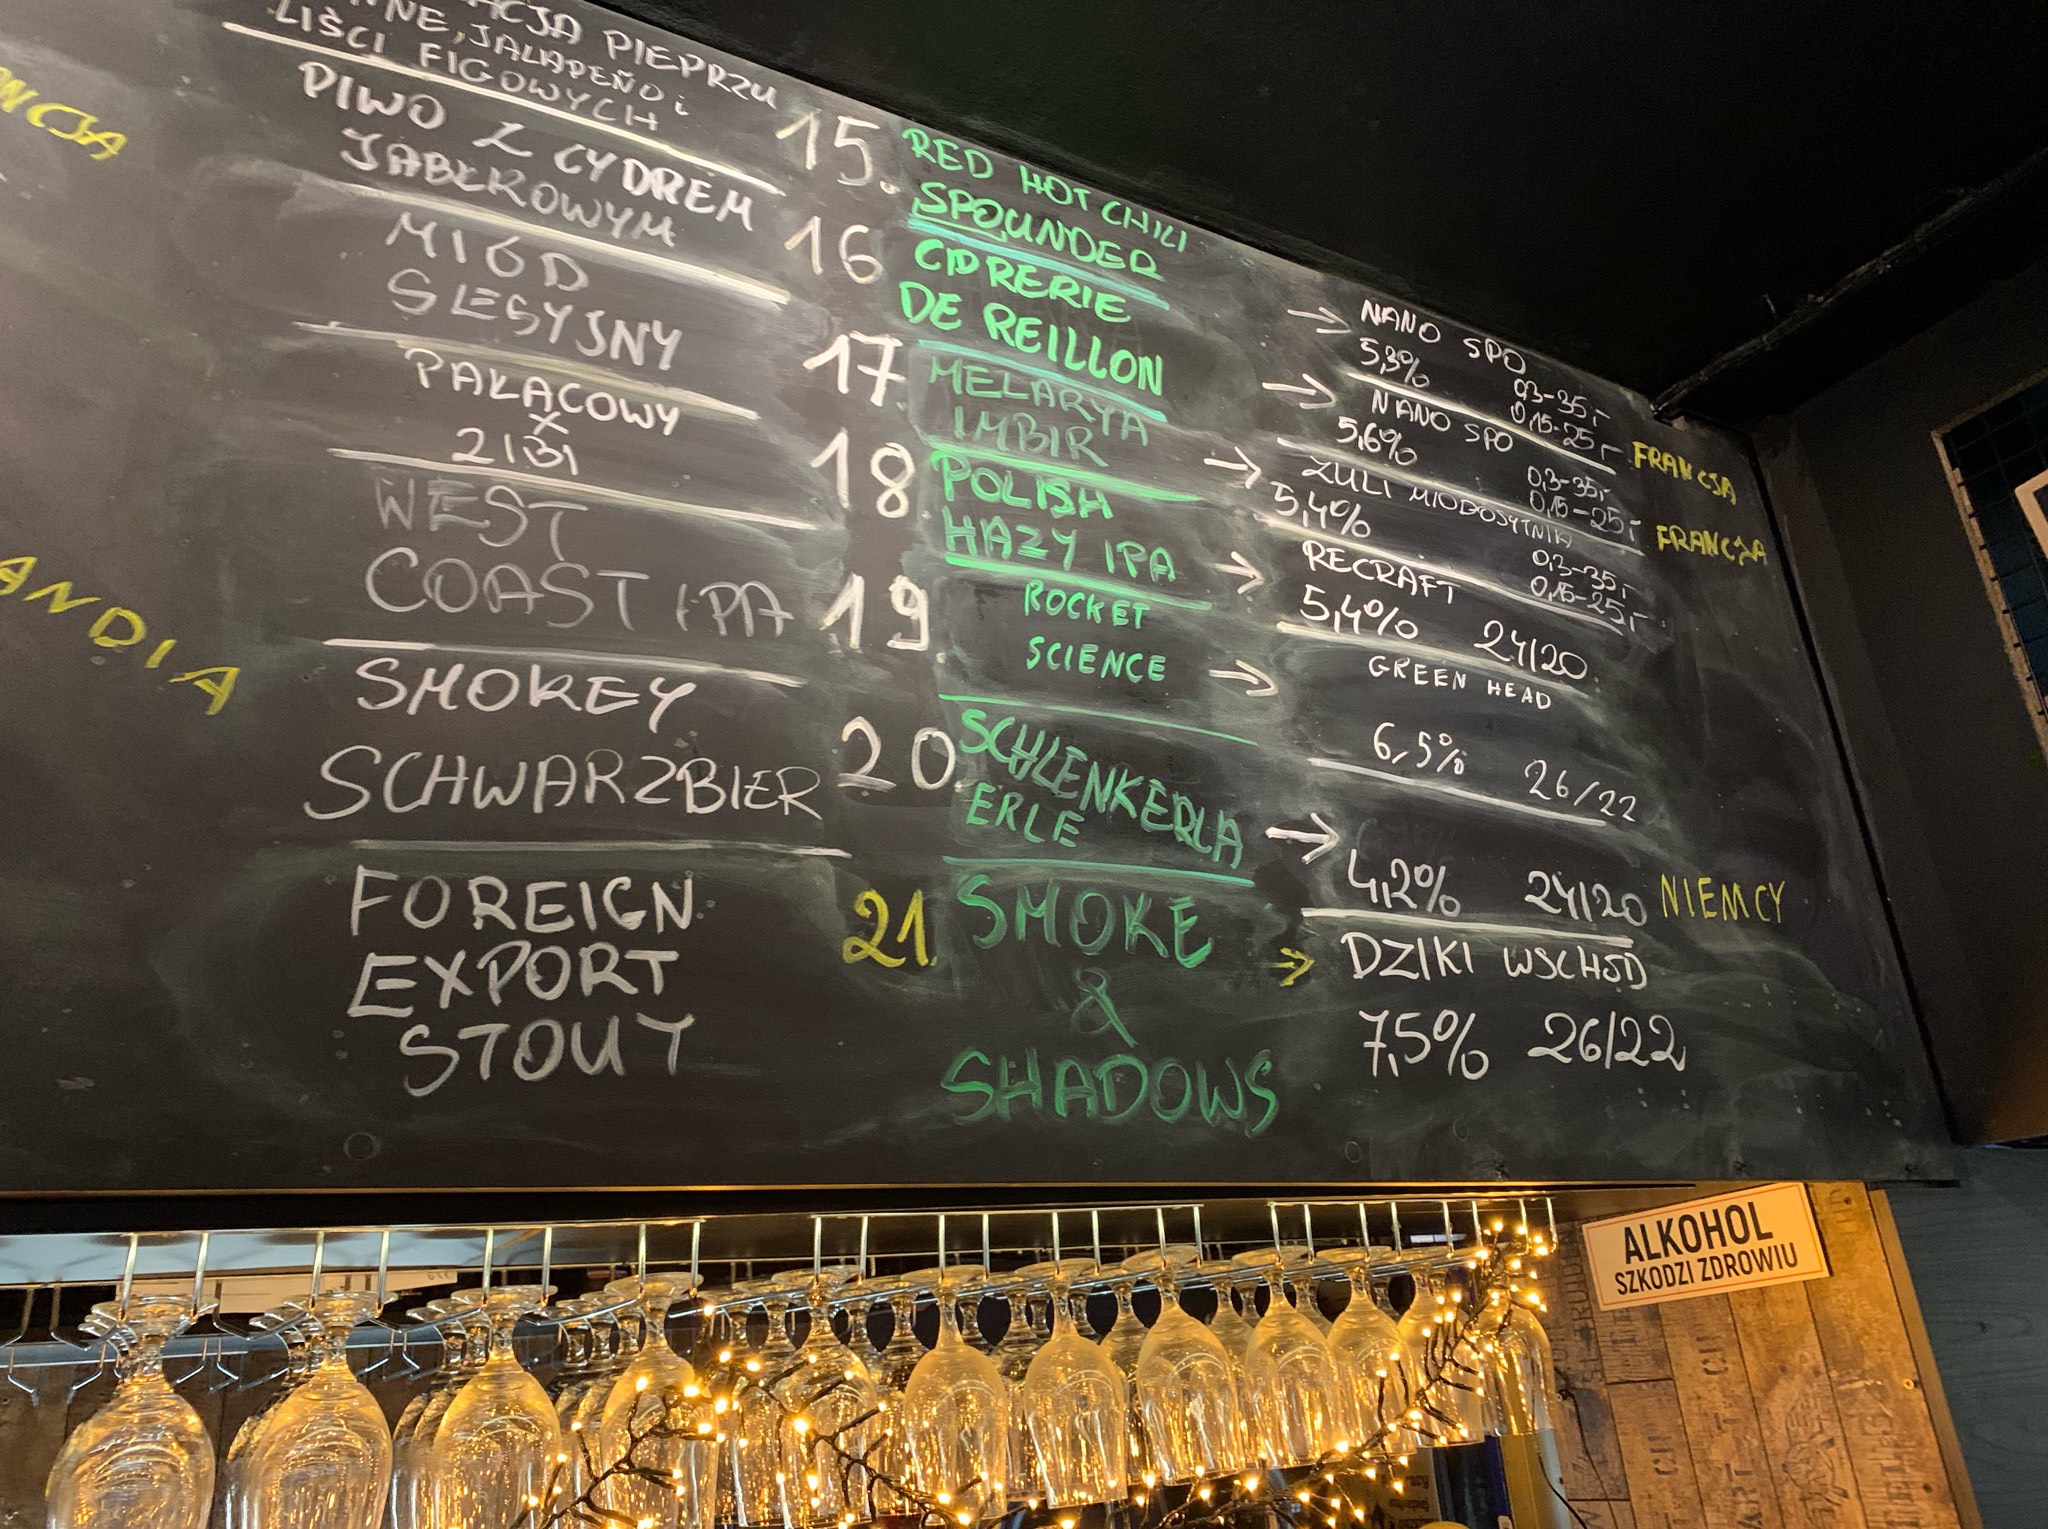 PIEPRZU
JALAPEÑO i
LIŚCI FIGOWYCH
PIWO Z CYDREM
JABŁKOWYM
MIÓD
SLESYJNY
PAŁACOWY
X
ZIBI
WEST
COAST IPA
SMOKEY
SCHWARZBIER
FOREIGN
EXPORT
STOUT
ANDIA
15. RED HOT CHILI
SPOUNDER
16 CIDRERIE
DE REILLON
17 MELARYA
IMBIR
18 POLISH
HAZY IPA
19. ROCKET
SCIENCE
20. SCHLENKERLA
ERLE
21. SMOKE
&
SHADOWS
→ NANO SPO
5,3% 0,3-35,-
0,15-25,- FRANCJA
→ NANO SPO
5,6% 0,3-35,-
0,15-25,- FRANCJA
→ ZULI MIODOSYTNIA
5,4% 0,3-35,-
0,15-25,-
→ RECRAFT
5,4% 24/20
→ GREEN HEAD
6,5% 26/22
→ 4,2% 24/20 NIEMCY
→ DZIKI WSCHÓD
7,5% 26/22
ALKOHOL
SZKODZI ZDROWIU